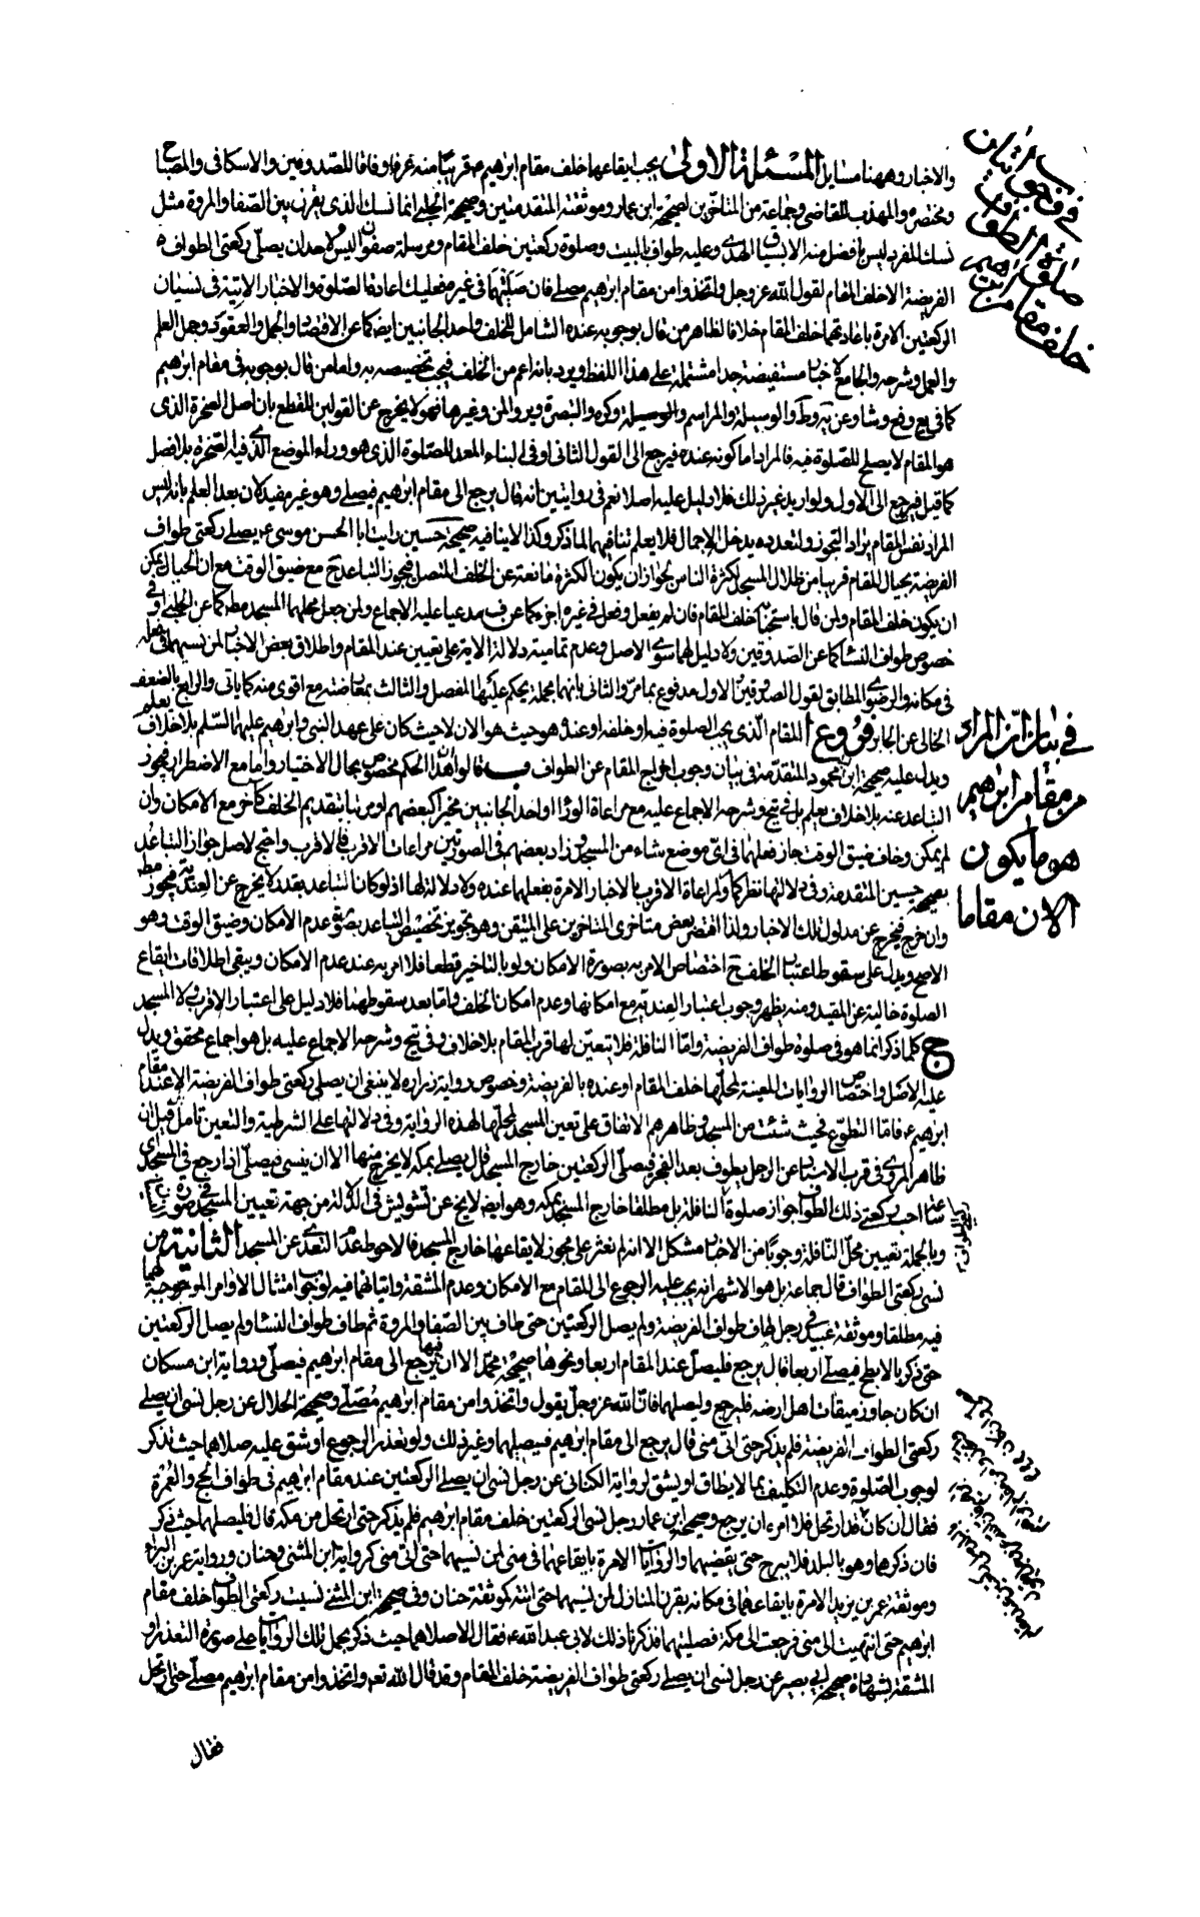 والاخبار وههنا مسايل المسئلة الاولى يجب ايقاعها خلف مقام ابرهيم ع قريبا منه عرفا وفاقا للصدوقين والاسكافى والمصباح
ومختصره والمهذب للقاضى وجماعة من المتاخرين لصحيحة ابن عمار وموثقته المتقدمتين وصحيحة الحلبى انما نسك الذى يقرن بين الصفا والمروة مثل
نسك المفرد ليس بافضل منه الا بسياق الهدى وعليه طواف بالبيت وصلوة ركعتين خلف المقام ومرسلة صفوان ليس لاحد ان يصلى ركعتى الطواف
الفريضة الا خلف المقام لقول الله عز وجل واتخذوا من مقام ابرهيم مصلى فان صليتهما فى غيره فعليك اعادة الصلوة والاخبار الاتية فى نسيان
الركعتين الامرة باعادتهما خلف المقام خلافا لظاهر من قال بوجوبه عنده الشامل للخلف واحد الجانبين ايضا كما عن الاقتصاد والجمل والعقود وجمل العلم
والعمل وشرحه والجامع لاخبار مستفيضة جدا مشتملة على هذا اللفظ ويرد بانه اعم من الخلف فيجب تخصيصه به واما من قال بوجوبه فى مقام ابرهيم
كما فى يع وفع وشاد وعن يه وط والوسيلة والمراسم وكره والتبصرة وير والمن وغيرها فهو لا يخرج عن القولين للقطع بان اصل الصخرة الذى
هو المقام لا يصلح للصلوة فيه فالمراد اما كونه عنده فيرجع الى القول الثانى او فى البناء المعد للصلوة الذى هو وراء الموضع الذى فيه الصخرة بلا فصل
كما قيل فيرجع الى الاول ولو اريد غير ذلك فلا دليل عليه اصلا نعم فى روايتين انه قال يرجع الى مقام ابرهيم فيصلى وهو غير مفيد لان بعد العلم بانه ليس
المراد نفس المقام يراد التجوز ولتعدده يدخل الاجمال فلا يعلم تنافيهما لما ذكر وكذا لا ينافيه صحيحة حسين رايت ابا الحسن موسى ع يصلى ركعتى طواف
الفريضة بحيال المقام قريبا من ظلال المسجد لكثرة الناس لجواز ان يكون الكثرة مانعة عن الخلف المتصل فيجوز التباعد ح مع ضيق الوقت مع ان الحيال يمكن
ان يكون خلف المقام ولمن قال باستحبابه خلف المقام فان لم يفعل وفعل فى غيره اجزء كما عن ف مدعيا عليه الاجماع ولمن جعل محلهما المسجد مطلقا كما عن الحلبى وفى
خصوص طواف النساء كما عن الصدوقين ولا دليل لهما سوى الاصل وعدم تمامية دلالة الاية على تعيين عند المقام واطلاق بعض الاخبار لمن نسيهما فى فعله
فى مكانه والرضوى المطابق لقول الصدوقين والاول مدفوع بما مر والثانى بانهما مجملة يحكم عليها المفصل والثالث بمعارضته مع اقوى منه كما ياتى والرابع بالضعف
الخالى عن الجابر فروع ا المقام الذى يجب الصلوة فيه او خلفه او عنده هو حيث هو الان لا حيث كان على عهد النبى وابرهيم عليهما السلم بلا خلاف يعلم
ويدل عليه صحيحة ابن محمود المتقدمة فى بيان وجوب اخراج المقام عن الطواف ب قالوا هذا الحكم مخصوص بحال الاختيار واما مع الاضطرار فيجوز
التباعد عنه بلا خلاف يعلم بل فى يتح وشرحه الاجماع عليه مع مراعاة الوراء او احد الجانبين مخيرا كبعضهم او مرتبا بتقديم الخلف كاخر مع الامكان وان
لم يمكن وخاف ضيق الوقت جاز فعلهما فى اى موضع شاء من المسجد وزاد بعضهم فى الصورتين مراعات الاقرب فالاقرب واحتج لاصل جواز التباعد
بصحيحة حسين المتقدمة وفى دلالتها نظر كما مر ولمراعاة الاقرب بالاخبار الامرة بفعلهما عنده ولا دلالة لها اذ لو كان التباعد بقدر لا يخرج عن العندية فيجوز مطلقا
وان خرج فيخرج عن مدلول تلك الاخبار ولذا اقتصر بعض متاخرى المتاخرين على المتيقن وهو تجويز تخصيص التباعد بصورة عدم الامكان وضيق الوقت وهو
الاصح ويدل على سقوط اعتبار الخلف ح اختصاص الامر به بصورة الامكان ولو بالتاخير قطعا فلا امر به عند عدم الامكان ويبقى اطلاقات ايقاع
الصلوة خالية عن المقيد ومنه يظهر وجوب اعتبار العندية مع امكانها وعدم امكان الخلف واما بعد سقوطهما فلا دليل على اعتبار الاقرب ولا المسجد
ج كلما ذكر انما هو فى صلوة طواف الفريضة واما النافلة فلا يتعين لها قرب المقام بلا خلاف وفى يتح وشرحه الاجماع عليه بل هو اجماع محقق ويدل
عليه الاصل واختصاص الروايات المعينة لمحلها خلف المقام او عنده بالفريضة وخصوص رواية زرارة لا ينبغى ان يصلى ركعتى طواف الفريضة الا عند مقام
ابرهيم ع فاما التطوع فحيث شئت من المسجد وظاهرهم الاتفاق على تعين المسجد لمحلها لهذه الرواية وفى دلالتها على الشرطية والتعين تامل قيل ان
ظاهر المروى فى قرب الاسناد عن الرجل يطوف بعد الفجر فيصلى الركعتين خارج المسجد قال يصلى بمكة لا يخرج منها الا ان ينسى فيصلى اذا رجع فى المسجد اى
ساعة احب ركعتى ذلك الطواف جواز صلوة النافلة بل مطلقا خارج المسجد بمكة وهو ايضا لا يخ عن تشويش فى الدلالة من جهة تعيين المسجد فى صورة
وبالجملة تعيين محل النافلة وجوبا من الاخبار مشكل الا انه لم نعثر على مجوز لايقاعها خارج المسجد فالاحوط عدم التعدى عن المسجد الثانية من
نسى ركعتى الطواف قال جماعة بل هو الاشهر انه يجب عليه الرجوع الى المقام مع الامكان وعدم المشقة واتيانهما فيه لوجوب امتثال الاوامر الموجبة لهما
فيه مطلقا وموثقة عبيد فى رجل طاف طواف الفريضة ولم يصل الركعتين حتى طاف بين الصفا والمروة ثم طاف طواف النساء ولم يصل الركعتين
حتى ذكر بالابطح فيصلى اربعا قال يرجع فليصل عند المقام اربعا ونحوها صحيحة محمد الا ان فيها يرجع الى مقام ابرهيم فيصلى ورواية ابن مسكان
ان كان جاوز ميقات اهل ارضه فليرجع وليصلهما فان الله عز وجل يقول واتخذوا من مقام ابرهيم مصلى وصحيحة الحلال عن رجل نسى ان يصلى
ركعتى الطواف الفريضة فلم يذكر حتى اتى منى قال يرجع الى مقام ابرهيم فيصليهما وغير ذلك ولو تعذر الرجوع او شق عليه صلاهما حيث تذكر
لوجوب الصلوة وعدم التكليف بما لا يطاق او يشق لرواية الكنانى عن رجل نسى ان يصلى الركعتين عند مقام ابرهيم فى طواف الحج والعمرة
فقال ان كان قد ارتحل فلا امره ان يرجع وصحيحة ابن عمار رجل نسى الركعتين خلف مقام ابرهيم فلم يذكر حتى ارتحل من مكة قال فليصلهما حيث ذكر
فان ذكرهما وهو بالبلد فلا يبرح حتى يقضيهما والروايات الامرة بايقاعهما فى منى لمن نسيهما حتى اتى منى كرواية ابن المثنى وحنان ورواية عمر بن البراء
وموثقة عمر بن يزيد الامرة بايقاعهما فى مكانه بقرن المنازل لمن نسيهما حتى اتته كموثقة حنان وفى صحيحة ابن المثنى نسيت ركعتى الطواف خلف مقام
ابرهيم حتى انتهيت الى منى فرجعت الى مكة فصليتهما فذكرنا ذلك لابى عبد الله ع فقال الا صلاهما حيث ذكر بحمل تلك الروايات على صورة التعذر او
المشقة بشهادة صحيحة ابى بصير عن رجل نسى ان يصلى ركعتى طواف الفريضة خلف المقام وقد قال الله تعالى واتخذوا من مقام ابرهيم مصلى حتى ارتحل
فقال
فى وجوب اتيان
صلوة الطواف
خلف مقام ابرهيم
فى بيان ان المراد
من مقام ابرهيم
هو ما يكون
الان مقاما